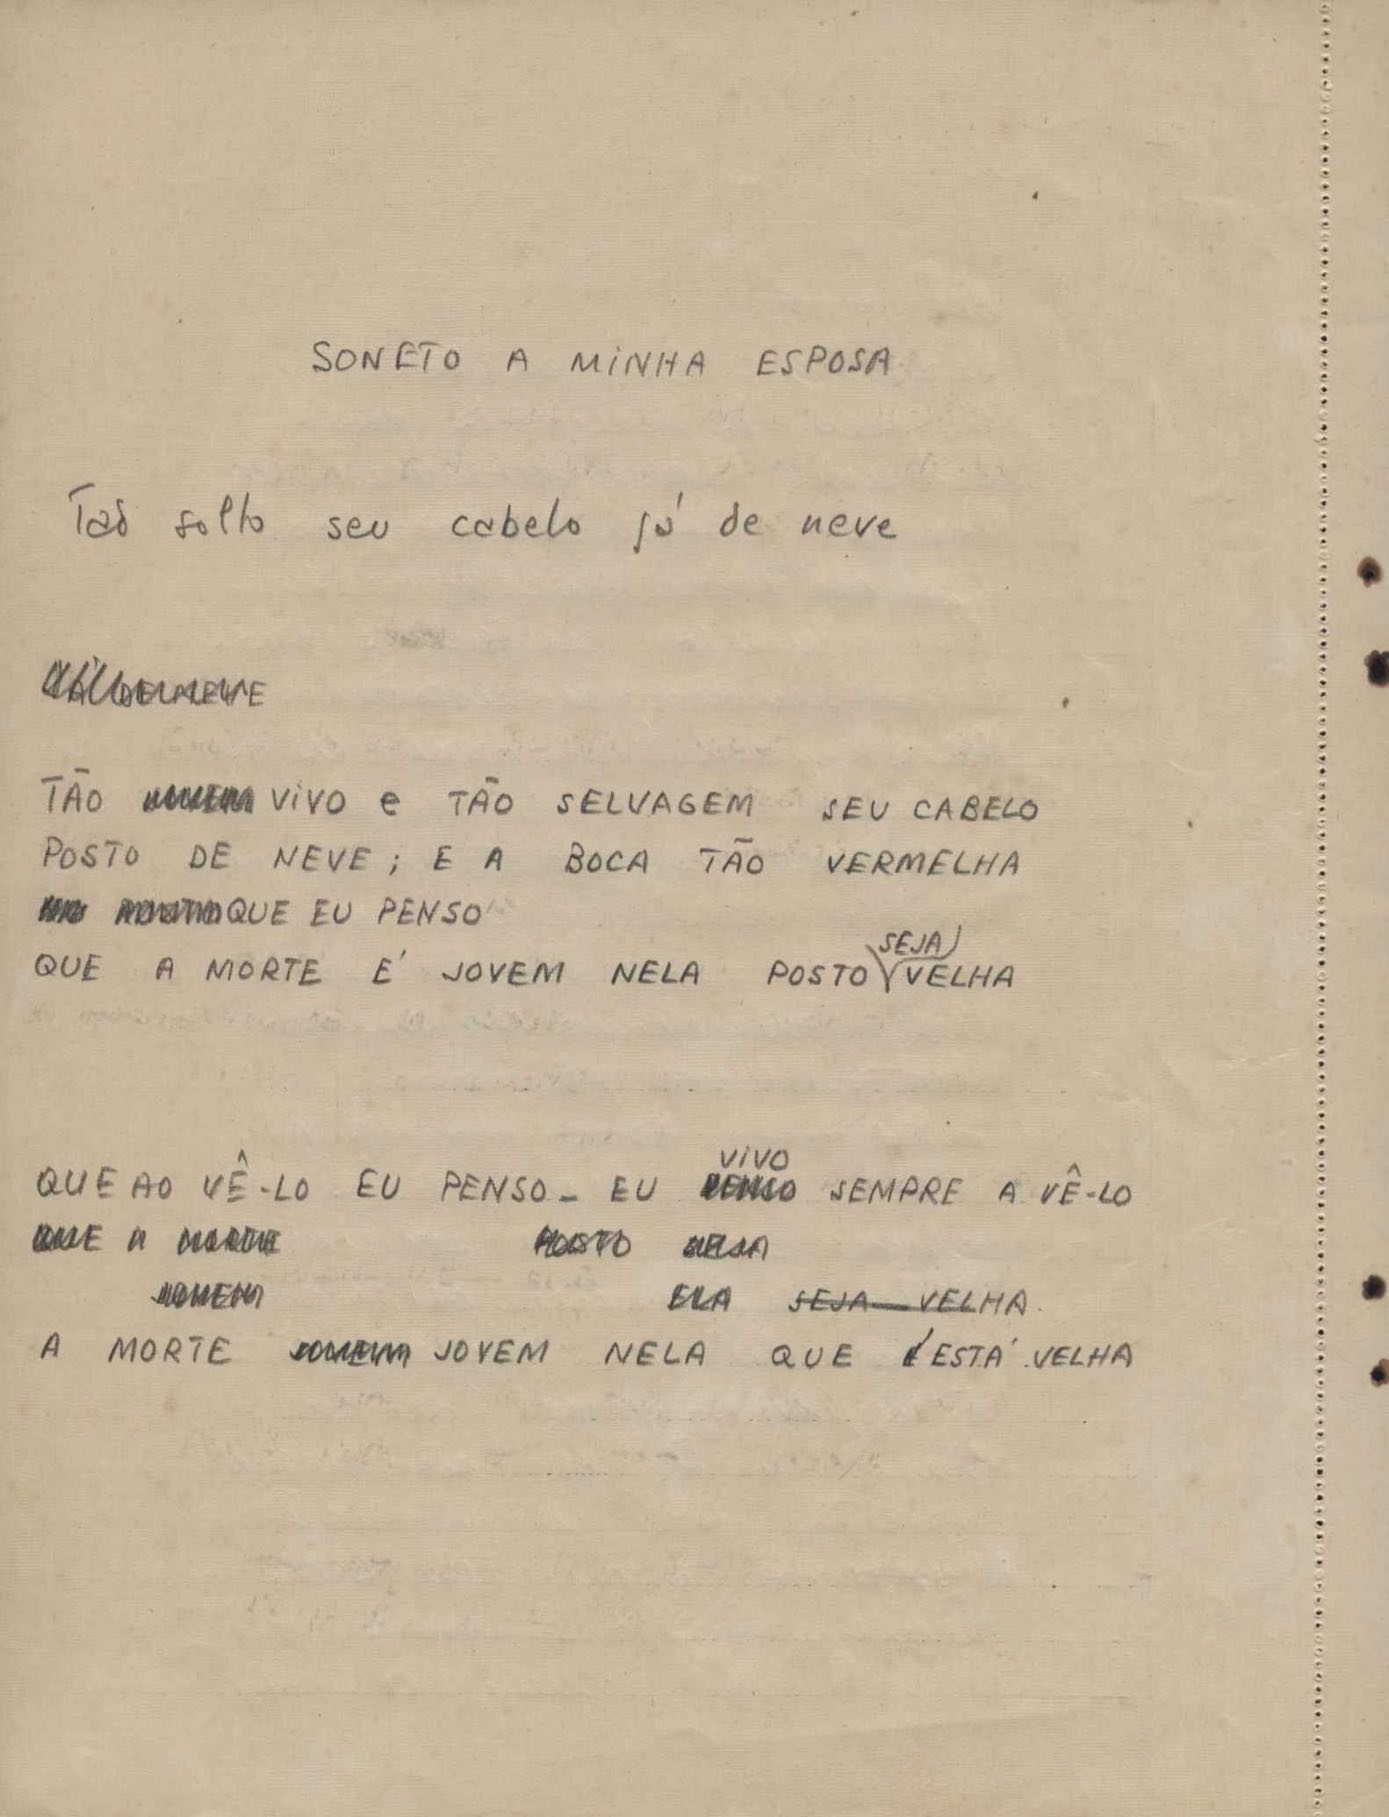 SONETO A MINHA ESPOSA
Tão solto seu cabelo já de neve
TÃO VIVO e TÃO SELVAGEM SEU CABELO
POSTO DE NEVE; E A BOCA TÃO VERMELHA
QUE EU PENSO
SEJA
QUE A MORTE É JOVEM NELA POSTO VELHA
VIVO
QUE AO VÊ-LO EU PENSO - EU PENSO SEMPRE A VÊ-LO
QUE A MORTE POSTO SEJA
JOVEM ELA SEJA VELHA.
A MORTE JOVEM JOVEM NELA QUE ESTÁ VELHA